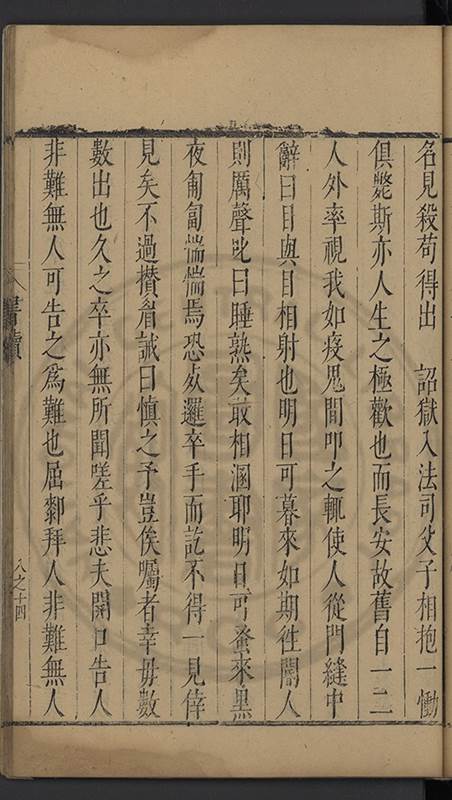 名見殺苟得出　詔獄入法司父子相抱一慟
俱斃斯亦人生之極歡也而長安故舊自一二
人外率視我如疫鬼間叩之輒使人從門縫中
辭曰日與目相射也明日可暮來如期往閽人
則厲聲叱曰睡熟矣敢相溷耶明日可蚤來黑
夜匍匐惴惴焉恐歿邏卒手而訖不得一見倖
見矣不過攢眉誡曰慎之予豈俟囑者幸毋數
數出也久之卒亦無所聞嗟乎悲夫開口告人
非難無人可告之爲難也屈厀拜人非難無人
尺牘
八之十四